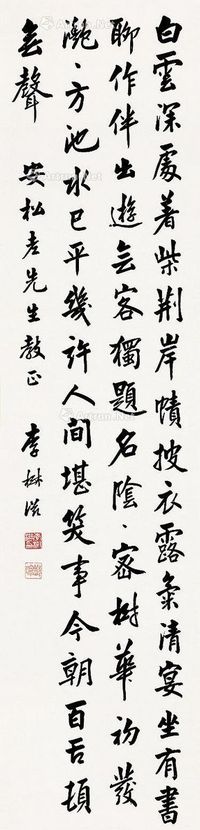 白雲深處着柴荆岸幘披衣露氣清宴坐有書
聊作伴出遊無客獨題名陰、密樹華初發
灔、方池水已平幾許人間堪笑事今朝百舌頓
無聲 安松老先生教正 李